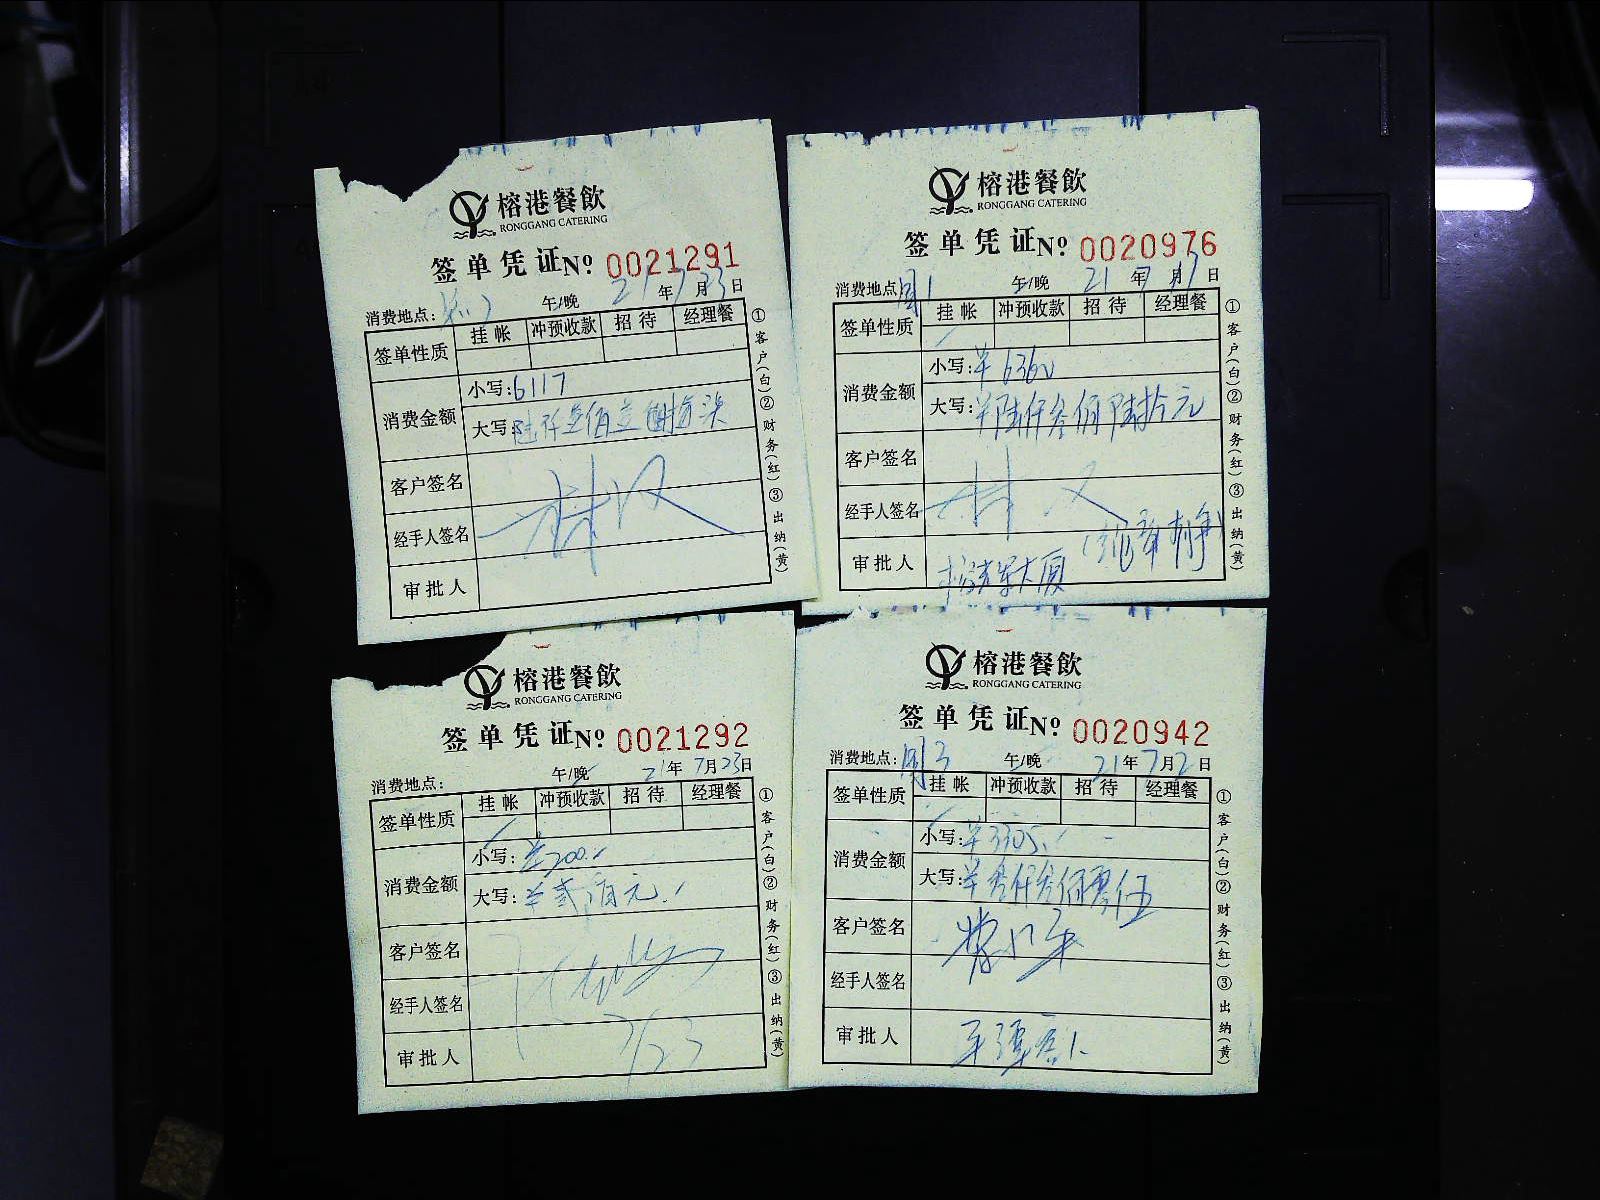 榕港餐飲
RONGGANG CATERING
签单凭证 № 0021291
消费地点: 午/晚 21年7月23日
签单性质 挂帐 冲预收款 招待 经理餐
消费金额 小写:6117
大写:陆仟壹佰壹拾柒
客户签名
经手人签名
审批人
①客户(白)②财务(红)③出纳(黄)
榕港餐飲
RONGGANG CATERING
签单凭证 № 0020976
消费地点: 午/晚 21年7月17日
签单性质 挂帐 冲预收款 招待 经理餐
消费金额 小写:¥6360
大写:¥陆仟叁佰陆拾元
客户签名
经手人签名
审批人 大厦
①客户(白)②财务(红)③出纳(黄)
榕港餐飲
RONGGANG CATERING
签单凭证 № 0021292
消费地点: 午/晚 21年7月23日
签单性质 挂帐 冲预收款 招待 经理餐
消费金额 小写:¥200.
大写:¥贰佰元.
客户签名
经手人签名
7/23
审批人
①客户(白)②财务(红)③出纳(黄)
榕港餐飲
RONGGANG CATERING
签单凭证 № 0020942
消费地点: 午/晚 21年7月2日
签单性质 挂帐 冲预收款 招待 经理餐
消费金额 小写:¥3305.
大写:¥叁仟叁佰零伍
客户签名
经手人签名
审批人
①客户(白)②财务(红)③出纳(黄)